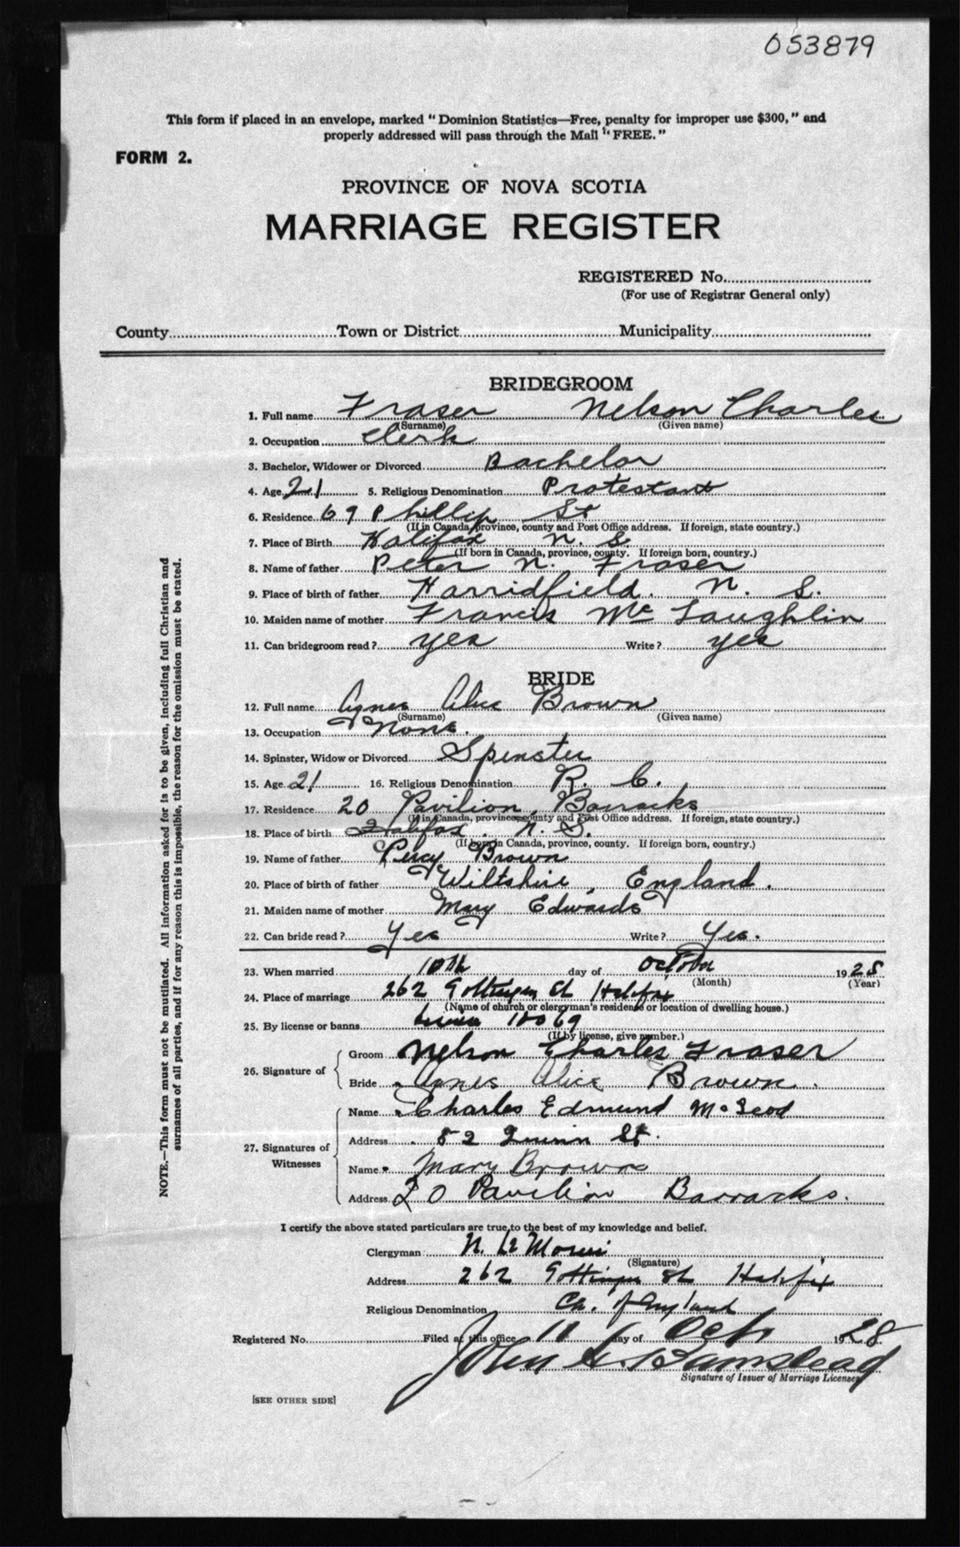 053879
This form if placed in an envelope, marked "Dominion Statistics—Free, penalty for improper use $300," and
properly addressed will pass through the Mail "FREE."
FORM 2.
PROVINCE OF NOVA SCOTIA
MARRIAGE REGISTER
REGISTERED No.
(For use of Registrar General only)
County Town or District Municipality
BRIDEGROOM
1. Full name Fraser Nelson Charles
(Surname) (Given name)
2. Occupation Clerk
3. Bachelor, Widower or Divorced Bachelor
4. Age 21 5. Religious Denomination Protestant
6. Residence 69 Phillip St
(If in Canada, province, county and Post Office address. If foreign, state country.)
7. Place of Birth Halifax N. S.
(If born in Canada, province, county. If foreign born, country.)
8. Name of father Peter N. Fraser
9. Place of birth of father Harridfield. N. S.
10. Maiden name of mother Francis Mc Laughlin
11. Can bridegroom read? yes Write? yes
BRIDE
12. Full name Agnes Alice Brown
(Surname) (Given name)
13. Occupation None.
14. Spinster, Widow or Divorced Spinster
15. Age 21 16. Religious Denomination R. C.
17. Residence 20 Pavilion Barracks
(If in Canada, province, county and Post Office address. If foreign, state country.)
18. Place of birth Halifax. N. S.
(If born in Canada, province, county. If foreign born, country.)
19. Name of father Percy Brown
20. Place of birth of father Wiltshire, England.
21. Maiden name of mother Mary Edwards
22. Can bride read? Yes Write? Yes.
23. When married 10th day of October 1928
(Month) (Year)
24. Place of marriage 262 Gottingen St Halifax
(Name of church or clergyman's residence or location of dwelling house.)
25. By license or banns 18069
(If by license, give number.)
26. Signature of
Groom Nelson Charles Fraser
Bride Agnes Alice Brown.
27. Signatures of Witnesses
Name Charles Edmund McLeod
Address 82 Quinn St.
Name Mary Brown
Address 20 Pavilion Barracks.
I certify the above stated particulars are true to the best of my knowledge and belief.
Clergyman N.
(Signature)
Address 262 Gottingen St Halifax
Religious Denomination Ch. of England
Registered No. Filed at this office 11 day of Oct 1928
John
Signature of Issuer of Marriage Licenses
[SEE OTHER SIDE]
NOTE.—This form must not be mutilated. All information asked for is to be given, including full Christian and
surnames of all parties, and if for any reason this is impossible, the reason for the omission must be stated.